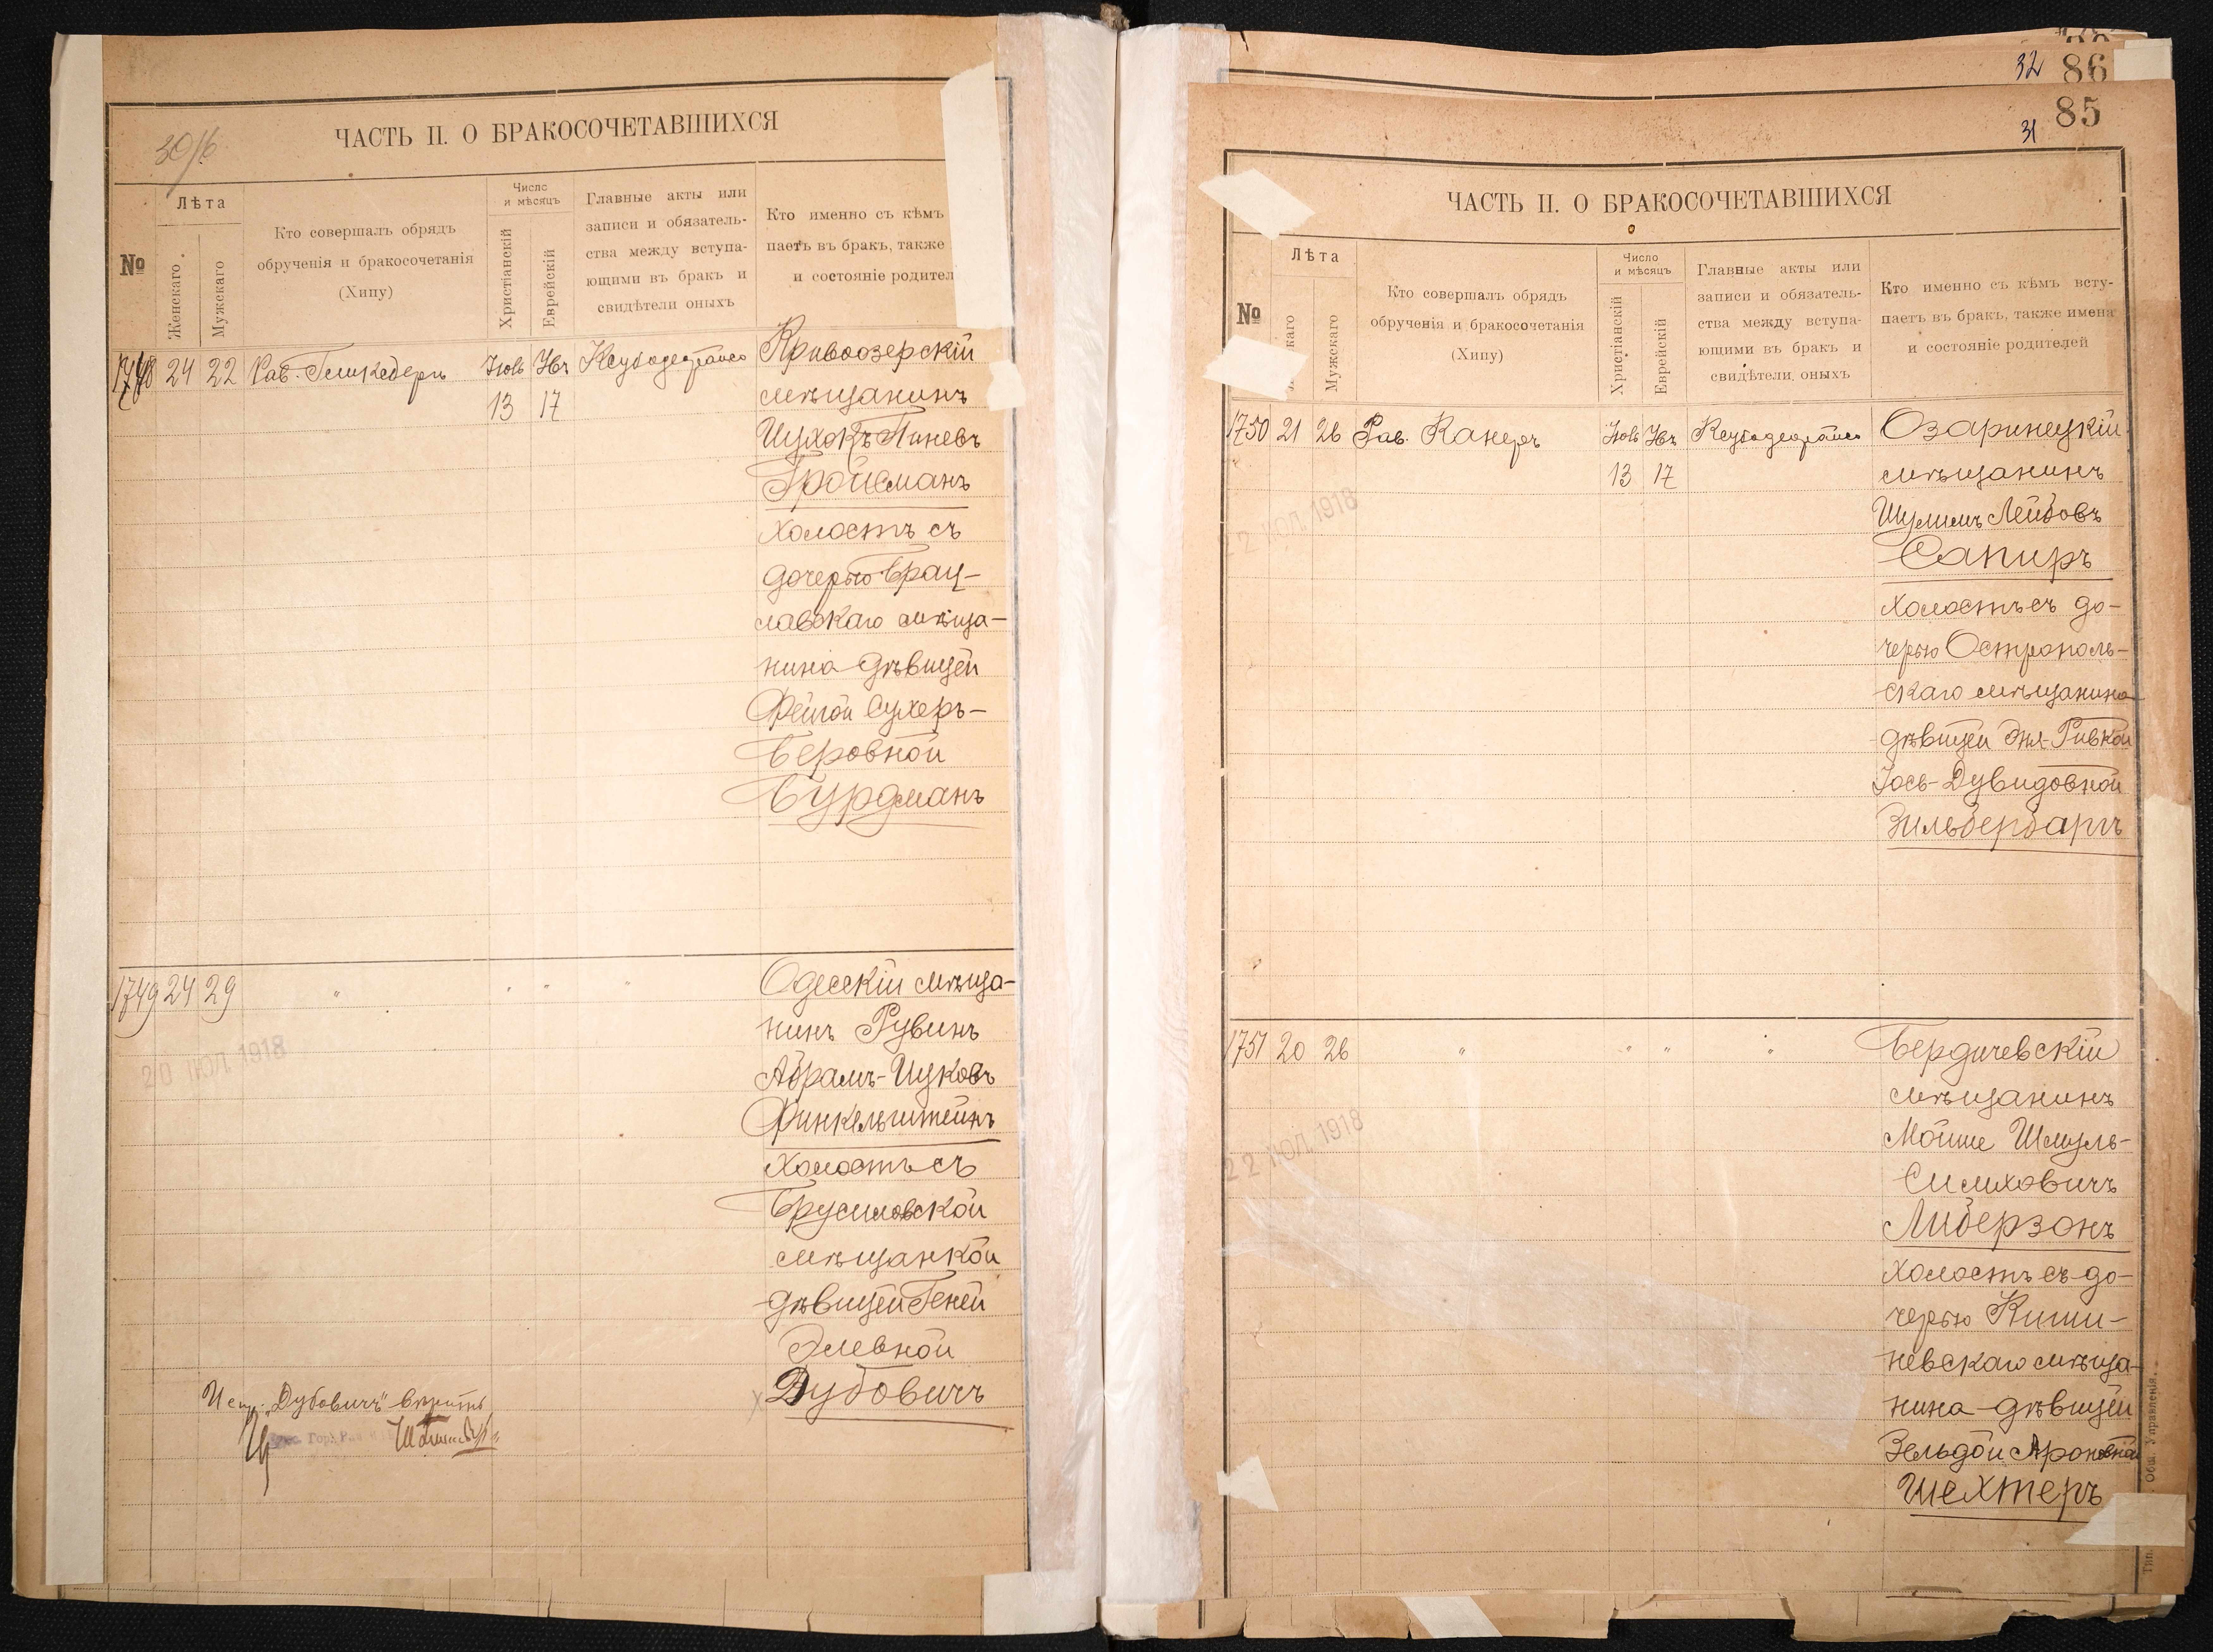 30/б
ЧАСТЬ II. О БРАКОСОЧЕТАВШИХСЯ
№
Лѣта
Женскаго
Мужскаго
Кто совершалъ обрядъ
обрученія и бракосочетанія
(Хипу)
Число
и мѣсяцъ
Христіанскій
Еврейскій
Главные акты или
записи и обязатель-
ства между вступа-
ющими въ бракъ и
свидѣтели оныхъ
Кто именно съ кѣмъ
паетъ въ бракъ, также
и состояніе родител
1748 24 22 Рав.
13 17
Кривоозерскій
мѣщанинъ
Ицхокъ Пиневъ
Гройсманъ
холостъ съ
дочерью Брац-
лавскаго мѣща-
нина дѣвицей
Фейгой Сухеръ-
Беровной
Бурдманъ
1749 24 29 " " " "
Одесскій мѣща-
нинъ Рувинъ
Абрамъ-Ицковъ
Финкельштейнъ
холостъ съ
Брусиловской
мѣщанкой
дѣвицей Геней
Элевной
Дубовичъ
20 ИЮЛ. 1918
Испр. „Дубовичъ" вѣрить
32 86
85
31
ЧАСТЬ II. О БРАКОСОЧЕТАВШИХСЯ
№
Лѣта
каго
Мужскаго
Кто совершалъ обрядъ
обрученія и бракосочетанія
(Хипу)
Число
и мѣсяцъ
Христіанскій
Еврейскій
Главные акты или
записи и обязатель-
ства между вступа-
ющими въ бракъ и
свидѣтели оныхъ
Кто именно съ кѣмъ всту-
паетъ въ бракъ, также имена
и состояніе родителей
1750 21 26 Рав. Канеръ
13 17
22 ИЮЛ. 1918
Озаринецкій
мѣщанинъ
Шулимъ Лейбовъ
Сапиръ
холостъ съ до-
черью Острополь-
скаго мѣщанина
дѣвицей Эня-Ривкой
Іось-Дувидовной
Зильбербаргъ
1751 20 26 " " " "
22 ИЮЛ. 1918
Бердичевскій
мѣщанинъ
Мойше Шмуль-
Симховичъ
Либерзонъ
холостъ съ до-
черью Киши-
невскаго мѣща-
нина дѣвицей
Зельдой Ароновной
Шехтеръ
Тип. Общ. Управленія.